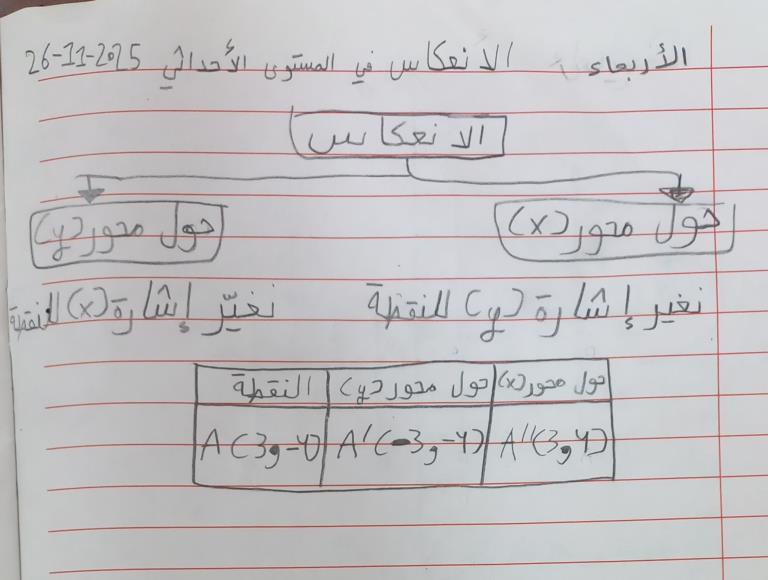 الأربعاء الانعكاس في المستوى الأحداثي 2025-11-26
الانعكاس
حول محور (x) حول محور (y)
نغير إشارة (y) للنقطة نغيّر إشارة (x) للنقطة
النقطة حول محور (y) حول محور (x)
A(3,-4) A'(-3,-4) A"(3,4)